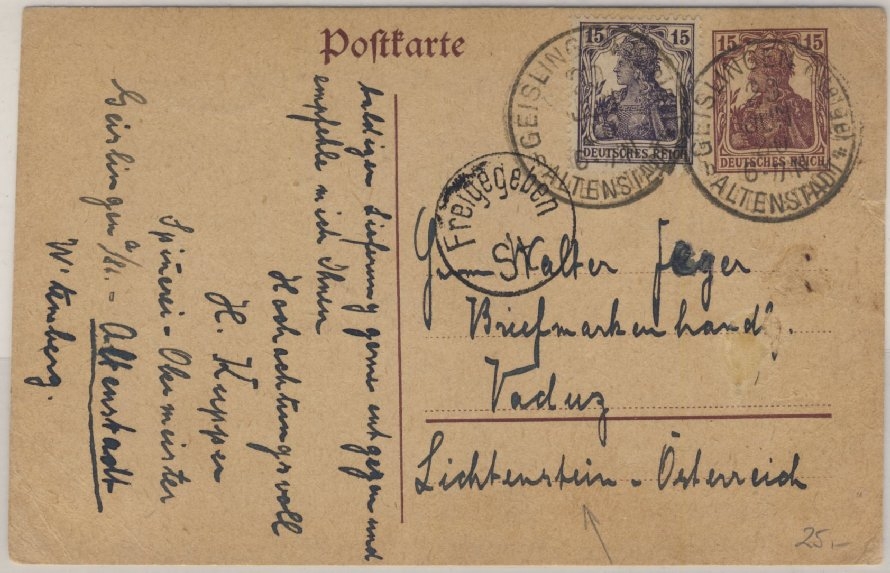 Postkarte
15 15
DEUTSCHES REICH
15 15
DEUTSCHES REICH
GEISLINGEN (Steige)
ALTENSTADT
GEISLINGEN (Steige)
ALTENSTADT
Freigegeben
Herrn Walter Jeger
Briefmarkenhandlg.
Vaduz
Lichtenstein - Österreich
25.-
baldigen Lieferung gerne entgegen und
empfehle mich Ihnen
Hochachtungsvoll
H. Kupper
Spinerei-Obermeister
Geislingen a/St. - Altenstadt